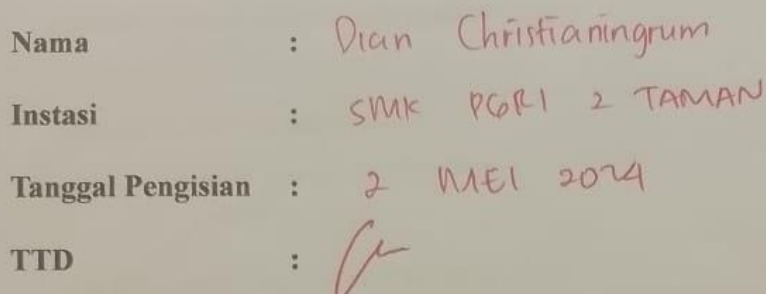 Nama : Dian Christianingrum
Instasi : SMK PGRI 2 TAMAN
Tanggal Pengisian : 2 MEI 2024
TTD :